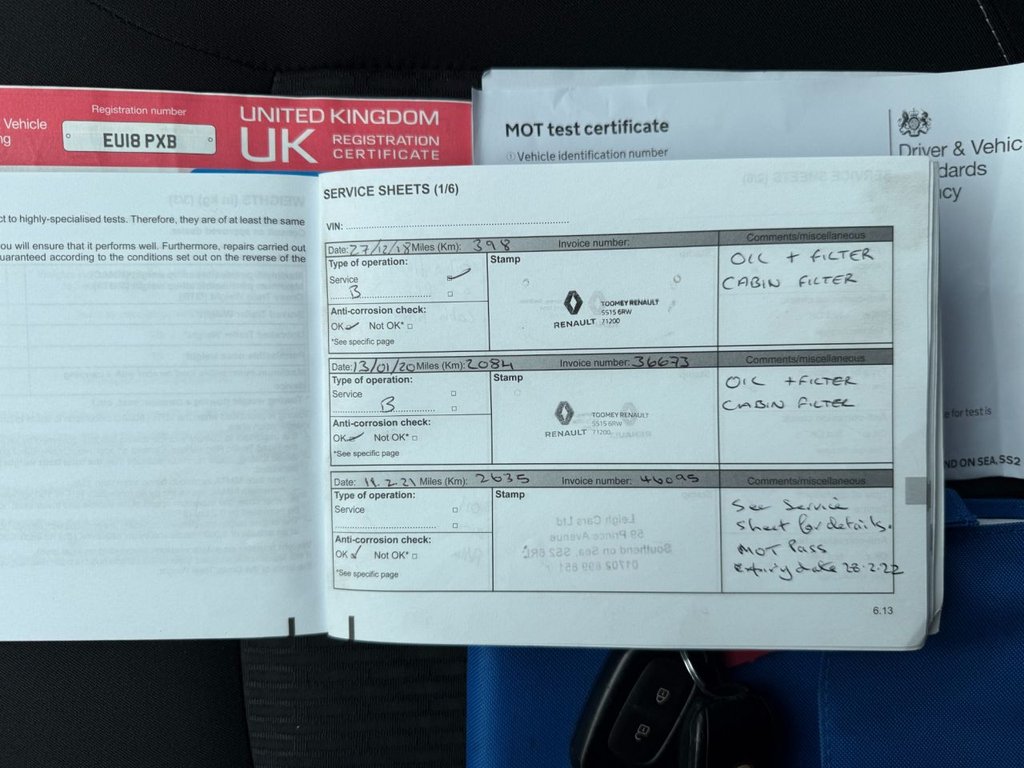 Vehicle
ng
Registration number
EU18 PXB
UNITED KINGDOM
UK
REGISTRATION
CERTIFICATE
MOT test certificate
① Vehicle identification number
Driver & Vehic
dards
cy
e for test is
ND ON SEA, SS2
ct to highly-specialised tests. Therefore, they are of at least the same
ou will ensure that it performs well. Furthermore, repairs carried out
uaranteed according to the conditions set out on the reverse of the
SERVICE SHEETS (1/6)
VIN:
Date: 27/12/18 Miles (Km): 398 Invoice number: Comments/miscellaneous
Type of operation:
Service
B
Anti-corrosion check:
OK Not OK*
*See specific page
Stamp
RENAULT
TOOMEY RENAULT
SS15 6RW
71200
OIL + FILTER
CABIN FILTER
Date: 13/01/20 Miles (Km): 2084 Invoice number: 36673 Comments/miscellaneous
Type of operation:
Service
B
Anti-corrosion check:
OK Not OK*
*See specific page
Stamp
RENAULT
TOOMEY RENAULT
SS15 6RW
71200
OIL + FILTER
CABIN FILTER
Date: 19.2.21 Miles (Km): 2635 Invoice number: 46095 Comments/miscellaneous
Type of operation:
Service
Anti-corrosion check:
OK Not OK*
*See specific page
Stamp
Leigh Cars Ltd
59 Prince Avenue
Southend on Sea, SS2 6RL
01702 899 851
See Service
Sheet for details.
MOT Pass
Expiry date 28.2.22
6.13